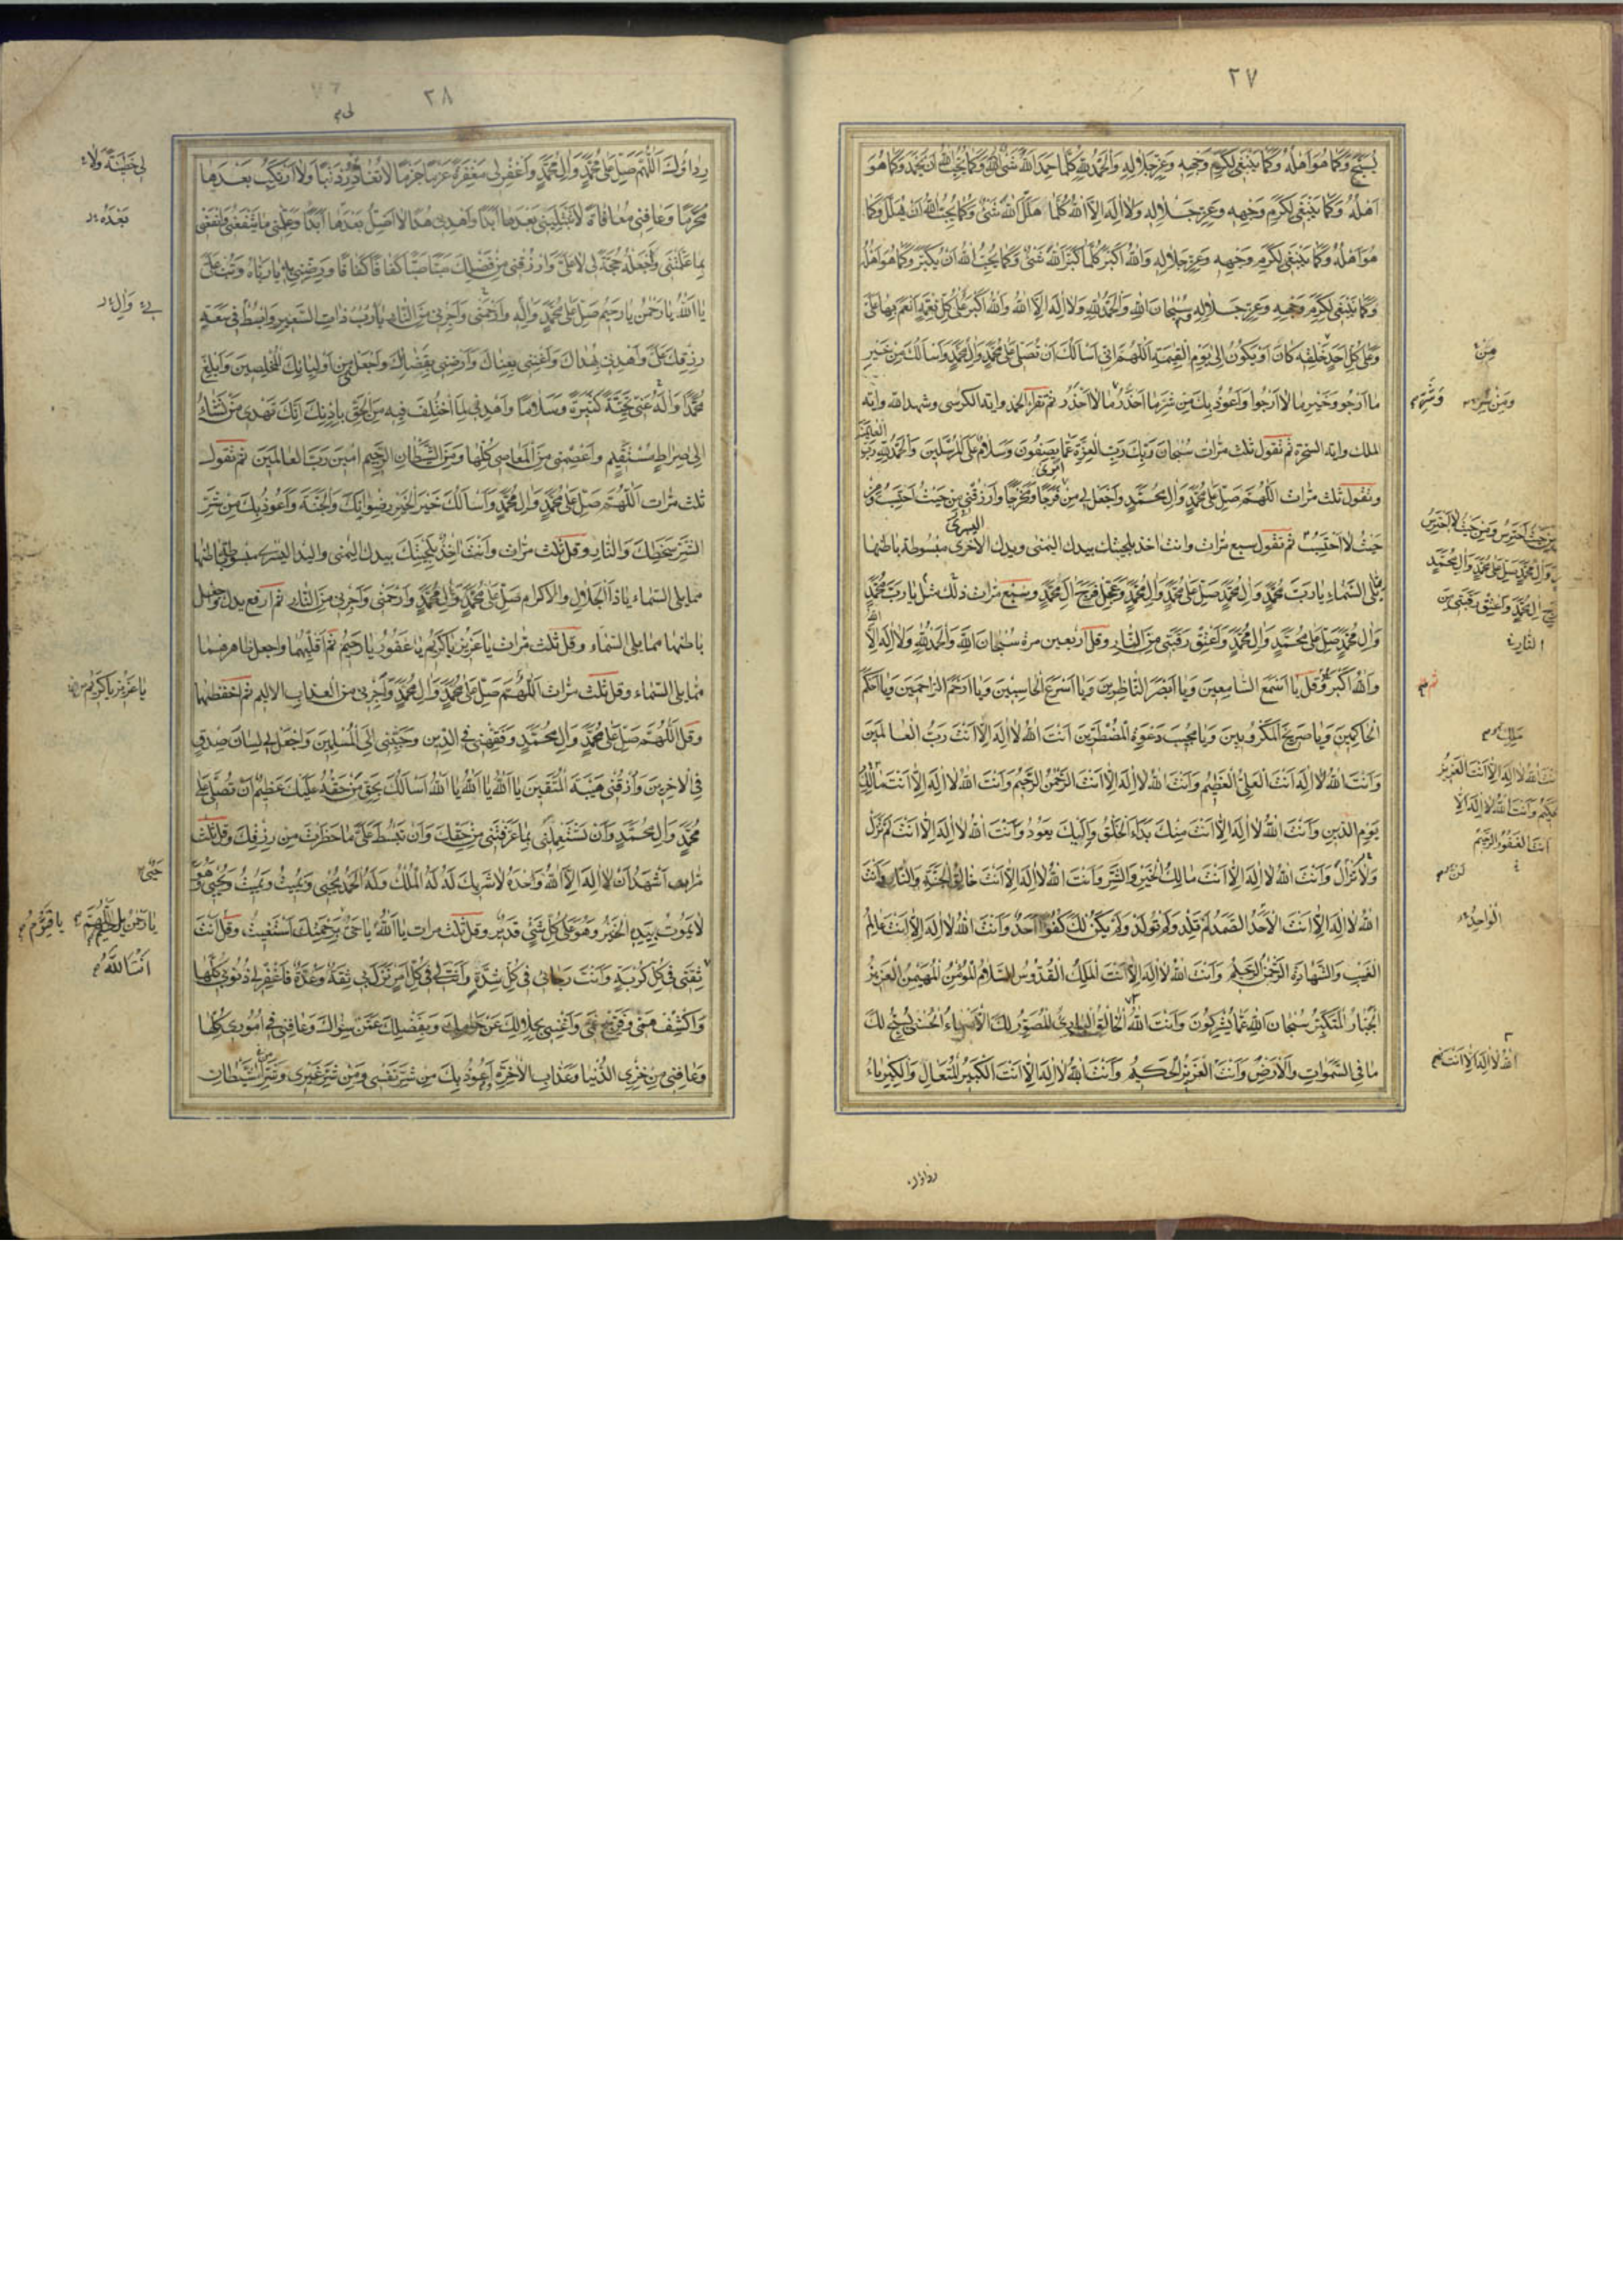 ٢٧
يُسَبَّحَ وَكَمَا هُوَ اَهْلُهُ وَكَمَا يَنْبَغِي لِكَرَمِ وَجْهِهِ وَعِزِّ جَلَالِهِ وَالْحَمْدُ لِلّهِ كُلَّمَا حَمِدَ اللهَ شَيْءٌ وَكَمَا يُحِبُّ اللهُ اَنْ يُحْمَدَ وَكَمَا هُوَ
اَهْلُهُ وَكَمَا يَنْبَغِي لِكَرَمِ وَجْهِهِ وَعِزِّ جَلَالِهِ وَلَا اِلهَ اِلَّا اللهُ كُلَّمَا هَلَّلَ اللهَ شَيْءٌ وَكَمَا يُحِبُّ اللهُ اَنْ يُهَلَّلَ وَكَمَا
هُوَ اَهْلُهُ وَكَمَا يَنْبَغِي لِكَرَمِ وَجْهِهِ وَعِزِّ جَلَالِهِ وَاللهُ اَكْبَرُ كُلَّمَا كَبَّرَ اللهَ شَيْءٌ وَكَمَا يُحِبُّ اللهُ اَنْ يُكَبَّرَ وَكَمَا هُوَ اَهْلُهُ
وَكَمَا يَنْبَغِي لِكَرَمِ وَجْهِهِ وَعِزِّ جَلَالِهِ وَسُبْحَانَ اللهِ وَالْحَمْدُ لِلّهِ وَلَا اِلهَ اِلَّا اللهُ وَاللهُ اَكْبَرُ عَلى كُلِّ نِعْمَةٍ اَنْعَمَ بِهَا عَلَيَّ
وَعَلى كُلِّ اَحَدٍ مِنْ خَلْقِهِ كَانَ اَوْ يَكُونُ اِلى يَوْمِ الْقِيمَةِ اَللّهُمَّ اِنّي اَسْاَلُكَ اَنْ تُصَلِّيَ عَلى مُحَمَّدٍ وَالِ مُحَمَّدٍ وَاَسْاَلُكَ مِنْ خَيْرِ
مَا اَرْجُو وَخَيْرِ مَا لَا اَرْجُوا وَاَعُوذُ بِكَ مِنْ شَرِّ مَا اَحْذَرُ مَا لَا اَحْذَرُ ثم تقرأ الحمد واية الكرسى وشهد الله واية
الملك واية السخرة ثم تقول ثلث مرات سُبْحَانَ رَبِّكَ رَبِّ الْعِزَّةِ عَمَّا يَصِفُونَ وَسَلَامٌ عَلَى الْمُرْسَلِينَ وَالْحَمْدُ لِلّهِ رَبِّ العالمين
وتقول ثلث مرات اَللّهُمَّ صَلِّ عَلى مُحَمَّدٍ وَالِ مُحَمَّدٍ وَاجْعَلْ لي مِنْ اَمْرِي فَرَجًا وَمَخْرَجًا وَارْزُقْني مِنْ حَيْثُ اَحْتَسِبُ وَمِنْ
حَيْثُ لَا اَحْتَسِبُ ثم تقول سبع مرات وانت اخذ بلحيتك بيدك اليمنى ويدك الاخرى اليسرى مبسوطة باطنها
يلى السماء يَا رَبَّ مُحَمَّدٍ وَالِ مُحَمَّدٍ صَلِّ عَلى مُحَمَّدٍ وَالِ مُحَمَّدٍ وَعَجِّلْ فَرَجَ الِ مُحَمَّدٍ وسبع مرات ذلك مثل يَا رَبَّ مُحَمَّدٍ
وَالِ مُحَمَّدٍ صَلِّ عَلى مُحَمَّدٍ وَالِ مُحَمَّدٍ وَاَعْتِقْ رَقَبَتي مِنَ النَّارِ وقل اربعين مرة سُبْحَانَ اللهِ وَالْحَمْدُ لِلّهِ وَلَا اِلهَ اِلَّا الله
وَاللهُ اَكْبَرُ وقل يَا اَسْمَعَ السَّامِعِينَ وَيَا اَبْصَرَ النَّاظِرِينَ وَيَا اَسْرَعَ الْحَاسِبِينَ وَيَا اَرْحَمَ الرَّاحِمِينَ وَيَا اَحْكَمَ
الْحَاكِمِينَ وَيَا صَرِيخَ الْمَكْرُوبِينَ وَيَا مُجِيبَ دَعْوَةِ الْمُضْطَرِّينَ اَنْتَ اللهُ لَا اِلهَ اِلَّا اَنْتَ رَبُّ الْعَالَمِينَ
وَاَنْتَ اللهُ لَا اِلهَ اَنْتَ الْعَلِيُّ الْعَظِيمُ وَاَنْتَ اللهُ لَا اِلهَ اِلَّا اَنْتَ الرَّحْمنُ الرَّحِيمُ وَاَنْتَ اللهُ لَا اِلهَ اِلَّا اَنْتَ مَالِكُ
يَوْمِ الدّينِ وَاَنْتَ اللهُ لَا اِلهَ اِلَّا اَنْتَ مِنْكَ بَدَاَ الْخَلْقُ وَاِلَيْكَ يَعُودُ وَاَنْتَ اللهُ لَا اِلهَ اِلَّا اَنْتَ لَمْ تَزَلْ
وَلَا تَزَالُ وَاَنْتَ اللهُ لَا اِلهَ اِلَّا اَنْتَ مَالِكُ الْخَيْرِ وَالشَّرِّ وَاَنْتَ اللهُ لَا اِلهَ اِلَّا اَنْتَ خَالِقُ الْجَنَّةِ وَالنَّارِ وَاَنْتَ
اللهُ لَا اِلهَ اِلَّا اَنْتَ الْاَحَدُ الصَّمَدُ لَمْ تَلِدْ وَلَمْ تُولَدْ وَلَمْ يَكُنْ لَكَ كُفُوًا اَحَدٌ وَاَنْتَ اللهُ لَا اِلهَ اِلَّا اَنْتَ عَالِمُ
الْغَيْبِ وَالشَّهَادَةِ الرَّحْمنُ الرَّحِيمُ وَاَنْتَ اللهُ لَا اِلهَ اِلَّا اَنْتَ الْمَلِكُ الْقُدُّوسُ السَّلَامُ الْمُؤْمِنُ الْمُهَيْمِنُ الْعَزِيزُ
الْجَبَّارُ الْمُتَكَبِّرُ سُبْحَانَ اللهِ عَمَّا يُشْرِكُونَ وَاَنْتَ اللهُ الْخَالِقُ الْبَارِئُ الْمُصَوِّرُ لَكَ الْاَسْمَاءُ الْحُسْنى يُسَبِّحُ لَكَ
مَا فِي السَّموَاتِ وَالْاَرْضِ وَاَنْتَ الْعَزِيزُ الْحَكِيمُ وَاَنْتَ اللهُ لَا اِلهَ اِلَّا اَنْتَ الْكَبِيرُ الْمُتَعَالِ وَالْكِبْرِيَاءُ
مِنْ
وَمِنْ شَرِّ
مِنْ حَيْثُ اَحْتَرِسُ وَمِنْ حَيْثُ لَا اَحْتَرِسُ
وَالِ مُحَمَّدٍ صَلِّ عَلى مُحَمَّدٍ وَالِ مُحَمَّدٍ
الِ مُحَمَّدٍ وَاَعْتِقْ رَقَبَتي مِنَ
النَّار
ثم
مَلِك
اللهُ لَا اِلهَ اِلَّا اَنْتَ الْعَزِيزُ
وَاَنْتَ اللهُ لَا اِلهَ اِلَّا
اَنْتَ الْغَفُورُ الرَّحِيمُ
لَنْ
الْوَاحِدُ
اللهُ لَا اِلهَ اِلَّا اَنْتَ
رداؤك
٢٨
رِدَاؤُكَ اَللّهُمَّ صَلِّ عَلى مُحَمَّدٍ وَالِ مُحَمَّدٍ وَاغْفِرْ لي مَغْفِرَةً عَزْمًا جَزْمًا لَا تُغَادِرُ ذَنْبًا وَلَا اَرْتَكِبُ بَعْدَهَا
مُحَرَّمًا وَعَافِني مُعَافَاةً لَا تَبْتَلِيني بَعْدَهَا اَبَدًا وَاهْدِني هُدًا لَا اَضِلُّ بَعْدَهَا اَبَدًا وَعَلِّمْني مَا يَنْفَعُني وَانْفَعْني
بِمَا عَلَّمْتَني وَاجْعَلْهُ حُجَّةً لي لَا عَلَيَّ وَارْزُقْني مِنْ فَضْلِكَ صَبًّا صَبًّا كَفَافًا كَفَافًا وَرَضِّني بِهِ يَا رَبَّاهُ وَتُبْ عَلَيَّ
يَا اَللهُ يَا رَحْمنُ يَا رَحِيمُ صَلِّ عَلى مُحَمَّدٍ وَالِهِ وَارْحَمْني وَاَجِرْني مِنَ النَّارِ يَا رَبِّ ذَاتِ السَّعِيرِ وَابْسُطْ في سَعَةِ
رِزْقِكَ عَلَيَّ وَاهْدِني بِهُدَاكَ وَاَغْنِني بِغِنَاكَ وَاَرْضِني بِقَضَائِكَ وَاجْعَلْني مِنْ اَوْلِيَائِكَ الْمُخْلِصِينَ وَاَبْلِغْ
مُحَمَّدًا وَالَهُ عَنّي تَحِيَّةً كَثِيرَةً وَسَلَامًا وَاهْدِني لِمَا اخْتُلِفَ فِيهِ مِنَ الْحَقِّ بِاِذْنِكَ اِنَّكَ تَهْدي مَنْ تَشَاءُ
اِلى صِرَاطٍ مُسْتَقِيمٍ وَاعْصِمْني مِنَ الْمَعَاصي كُلِّهَا وَمِنَ الشَّيْطَانِ الرَّجِيمِ امِينَ رَبَّ الْعَالَمِينَ ثم تقول
ثلث مرات اَللّهُمَّ صَلِّ عَلى مُحَمَّدٍ وَالِ مُحَمَّدٍ وَاَسْاَلُكَ خَيْرَ الْخَيْرِ رِضْوَانَكَ وَالْجَنَّةَ وَاَعُوذُ بِكَ مِنْ شَرِّ
الشَّرِّ سَخَطِكَ وَالنَّارِ وقل ثلث مرات وانت اخذ بلحيتك بيدك اليمنى واليد اليسرى مبسوطة باطنها
مما يلى السماء يَا ذَا الْجَلَالِ وَالْاِكْرَامِ صَلِّ عَلى مُحَمَّدٍ وَالِ مُحَمَّدٍ وَارْحَمْني وَاَجِرْني مِنَ النَّارِ ثم ارفع يدك واجعل
باطنها مما يلى السماء وقل ثلث مرات يَا عَزِيزُ يَا كَرِيمُ يَا غَفُورُ يَا رَحِيمُ ثم اقلبهما واجعل ظاهرهما
مما يلى السماء وقل ثلث مرات اَللّهُمَّ صَلِّ عَلى مُحَمَّدٍ وَالِ مُحَمَّدٍ وَاَجِرْني مِنَ الْعَذَابِ الْاَلِيمِ ثم اخفضهما
وقل اَللّهُمَّ صَلِّ عَلى مُحَمَّدٍ وَالِ مُحَمَّدٍ وَفَقِّهْني فِي الدّينِ وَحَبِّبْني اِلَى الْمُسْلِمِينَ وَاجْعَلْ لي لِسَانَ صِدْقٍ
فِي الْاخِرِينَ وَارْزُقْني هَيْبَةَ الْمُتَّقِينَ يَا اَللهُ يَا اَللهُ يَا اَللهُ اَسْاَلُكَ بِحَقِّ مَنْ حَقُّهُ عَلَيْكَ عَظِيمٌ اَنْ تُصَلِّيَ عَلى
مُحَمَّدٍ وَالِ مُحَمَّدٍ وَاَنْ تَسْتَعْمِلَني بِمَا عَرَّفْتَني مِنْ حَقِّكَ وَاَنْ تَبْسُطَ عَلَيَّ مَا حَظَرْتَ مِنْ رِزْقِكَ وقل ثلث
مرات اَشْهَدُ اَنْ لَا اِلهَ اِلَّا اللهُ وَحْدَهُ لَا شَرِيكَ لَهُ لَهُ الْمُلْكُ وَلَهُ الْحَمْدُ يُحْيي وَيُمِيتُ وَيُمِيتُ وَيُحْيي وَهُوَ
لَا يَمُوتُ بِيَدِهِ الْخَيْرُ وَهُوَ عَلى كُلِّ شَيْءٍ قَدِيرٌ وقل ثلث مرات يَا اَللهُ يَا حَيُّ بِرَحْمَتِكَ اَسْتَغِيثُ وقل اَنْتَ
ثِقَتي في كُلِّ كُرْبَةٍ وَاَنْتَ رَجَائي في كُلِّ شِدَّةٍ وَاَنْتَ لي في كُلِّ اَمْرٍ نَزَلَ بي ثِقَةٌ وَعُدَّةٌ فَاغْفِرْ لي ذُنُوبي كُلَّهَا
وَاكْشِفْ هَمّي وَفَرِّجْ غَمّي وَاَغْنِني بِحَلَالِكَ عَنْ حَرَامِكَ وَبِفَضْلِكَ عَمَّنْ سِوَاكَ وَعَافِني في اُمُوري كُلِّهَا
وَعَافِني مِنْ خِزْيِ الدُّنْيَا وَعَذَابِ الْاخِرَةِ وَاَعُوذُ بِكَ مِنْ شَرِّ نَفْسي وَمِنْ شَرِّ غَيْري وَشَرِّ الشَّيْطَانِ
لي خَطِيئَةً وَلَا
بَعْدَهُ
وَالِ
يَا عَزِيزُ يَا كَرِيمُ
حَيٌّ
يَا قَيُّومُ
اَنْتَ اللّهُمَّ